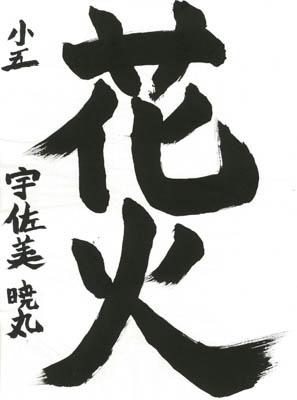 花火
小五
宇佐美 暁丸